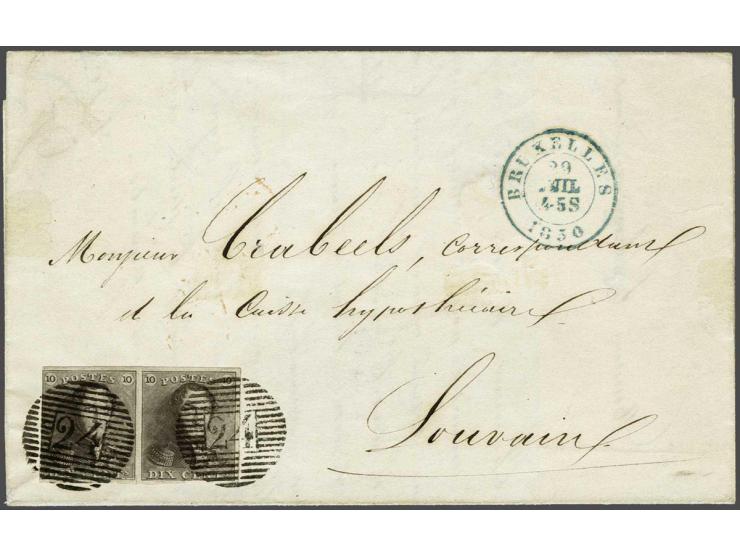 BRUXELLES
29
JUIL
4-5S
1850
Monsieur Crabeels, correspondant
de la Caisse hypothécaire
Louvain
10 POSTES 10
10 POSTES 10
24
24
DIX CENT